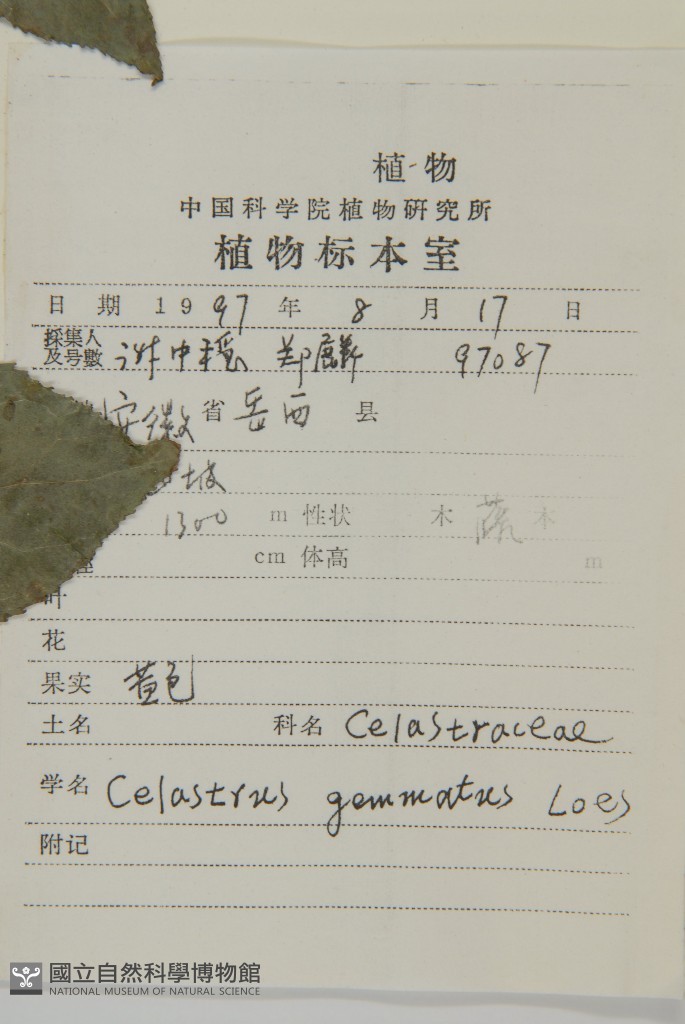 植物
中国科学院植物研究所
植物标本室
日期 1997 年 8 月 17 日
採集人及号數 谢中稳 郑麒 97087
安徽 省 岳西 县
坡
1300 m 性状 木 藤 本
cm 体高 m
叶
花
果实 黄色
土名 科名 Celastraceae
学名 Celastrus gemmatus Loes
附记
國立自然科學博物館
NATIONAL MUSEUM OF NATURAL SCIENCE